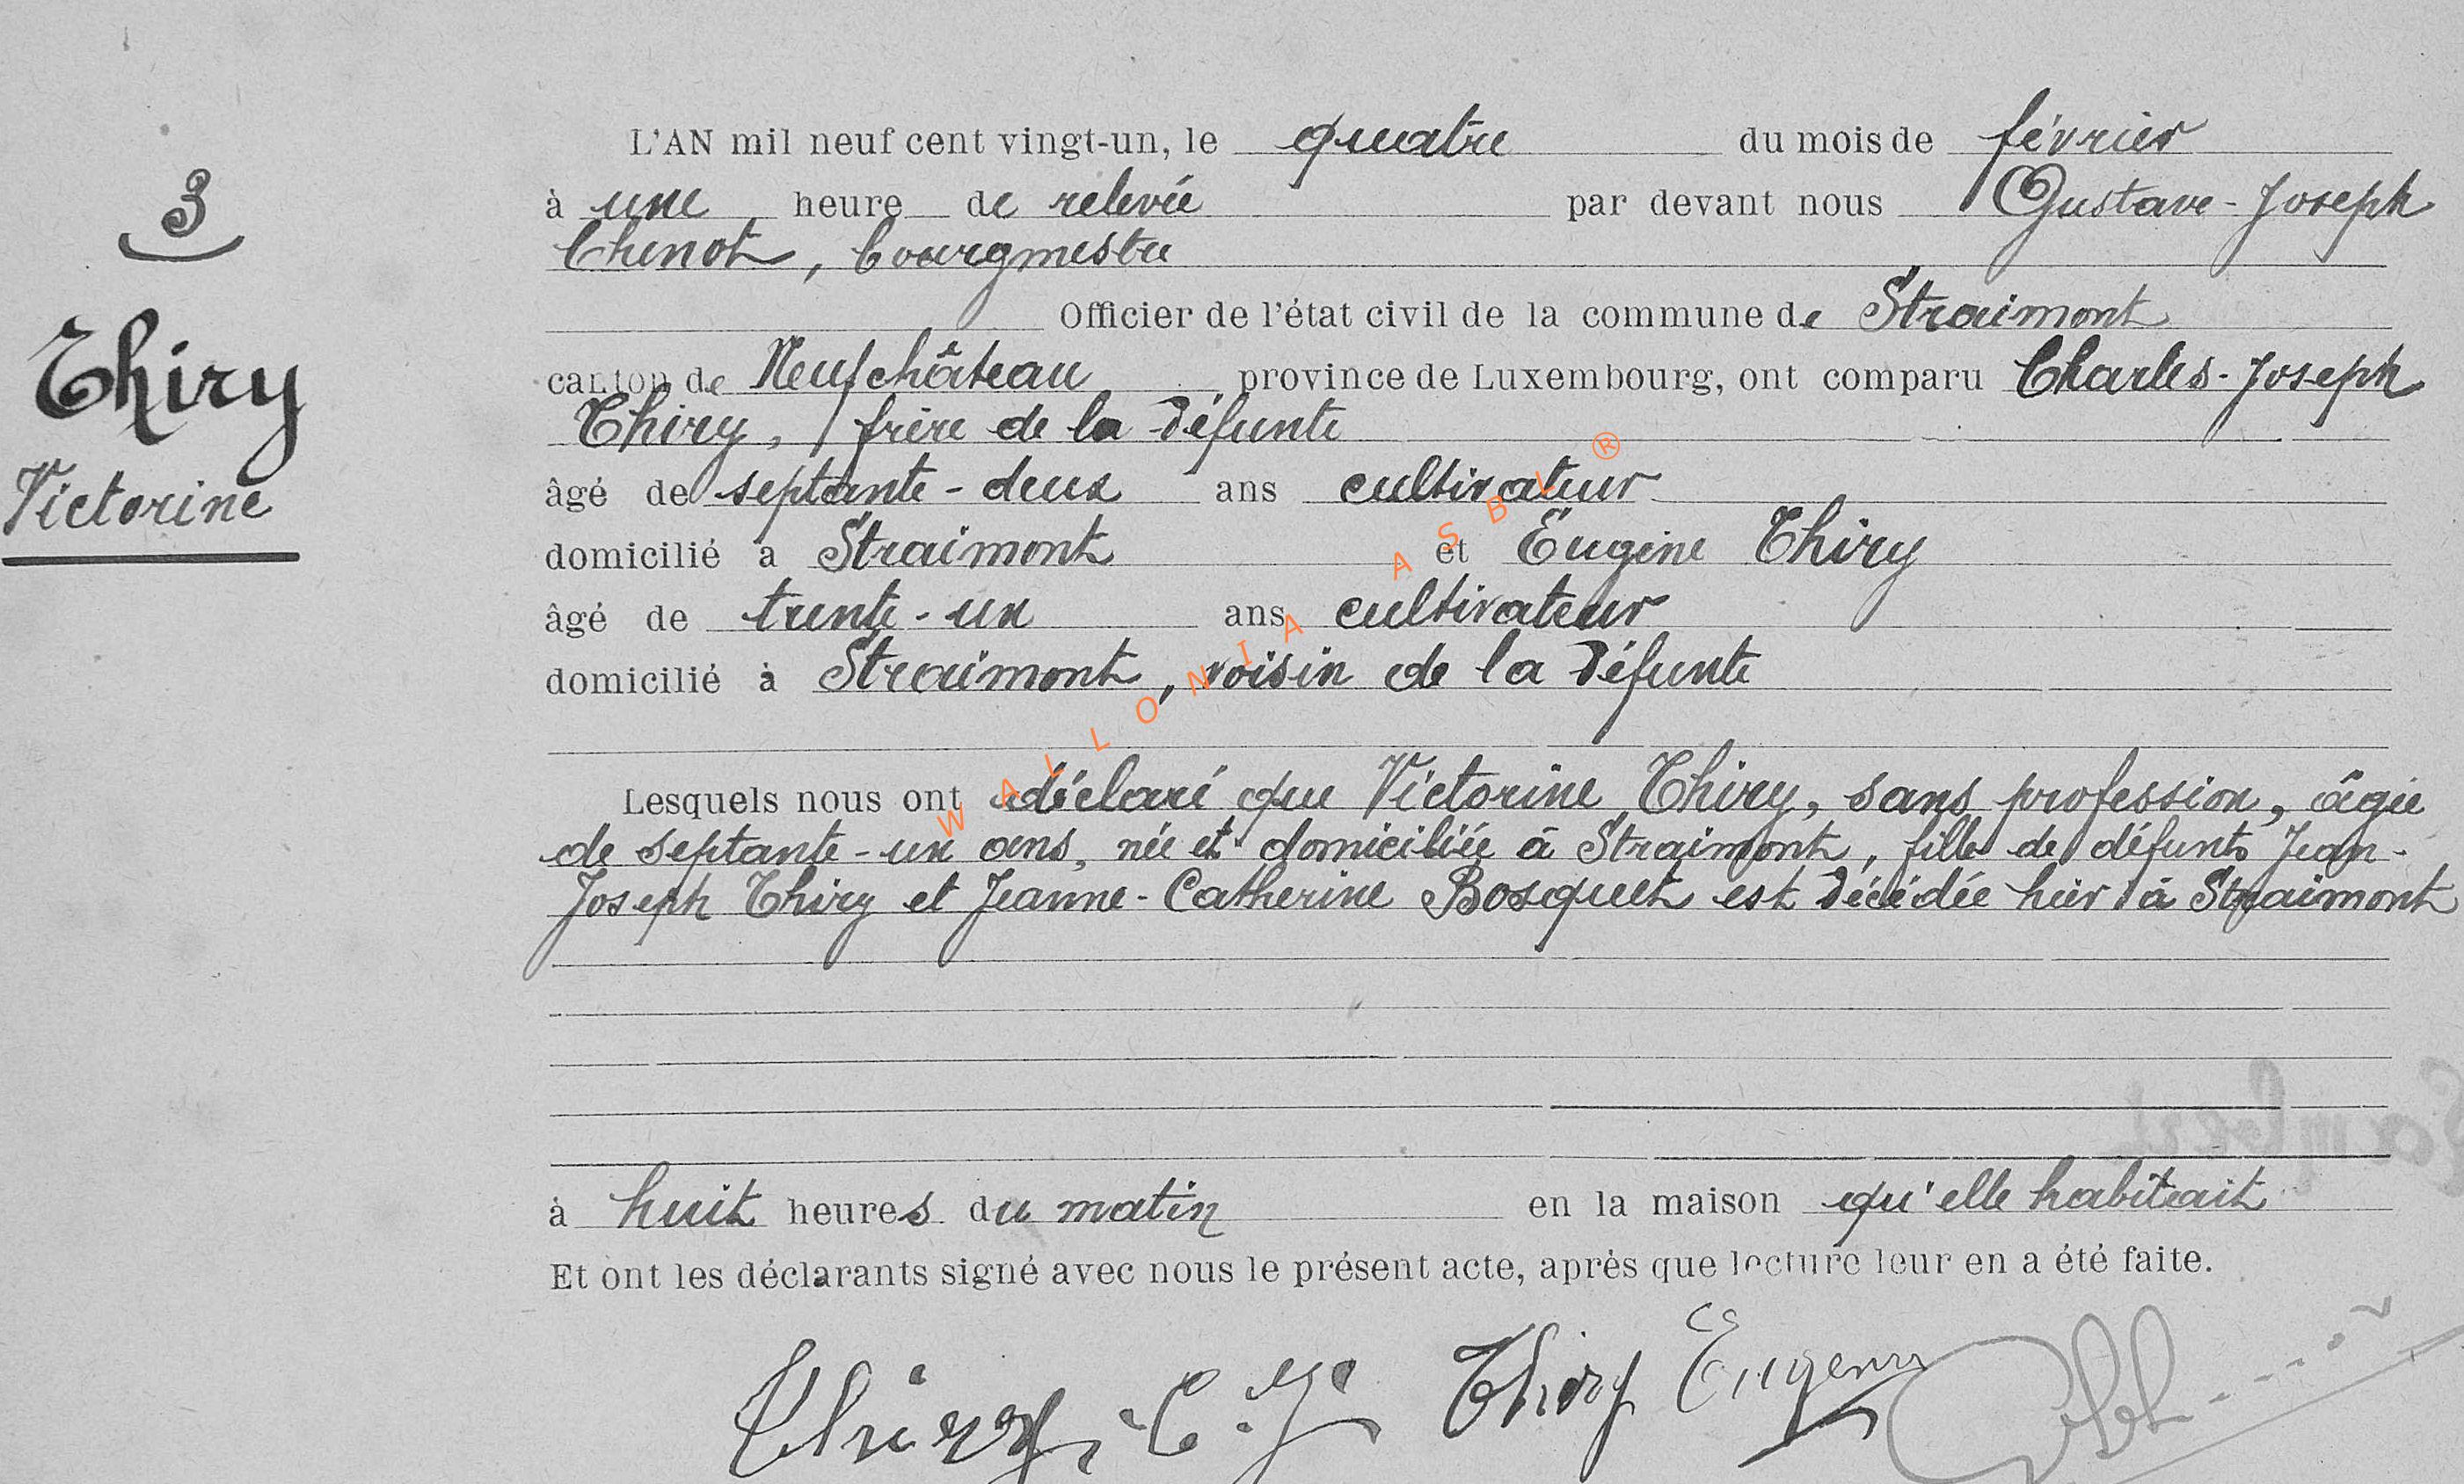 3
Thiry
Victorine
L'AN mil neuf cent vingt-un, le quatre du mois de février
à une heure de relevée par devant nous Gustave-Joseph
Chenot, bourgmestre
Officier de l'état civil de la commune de Straimont
canton de Neufchâteau province de Luxembourg, ont comparu Charles-Joseph
Thiry, frère de la défunte
âgé de septante-deux ans cultivateur
domicilié à Straimont et Eugène Thiry
âgé de trente-un ans cultivateur
domicilié à Straimont, voisin de la défunte
Lesquels nous ont déclaré que Victorine Thiry, sans profession, âgée
de septante-un ans, née et domiciliée à Straimont, fille de défunts Jean-
Joseph Thiry et Jeanne-Catherine Bosquet est décédée hier à Straimont
à huit heures du matin en la maison qu'elle habitait
Et ont les déclarants signé avec nous le présent acte, après que lecture leur en a été faite.
Thiry C. J. Thiry Eugène
WALLONIA ASBL ®